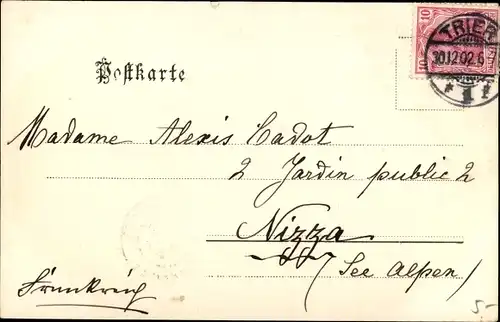 10
TRIER
30.12.02.6
* 1 f
Postkarte
Madame Alexis Cadot
2 Jardin public 2
Nizza
(See Alpen)
Frankreich
5-